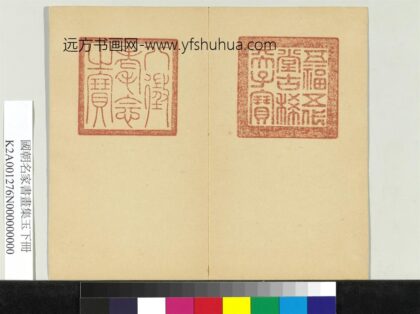 远方书画网-www.yfshuhua.com
五福五代
堂古稀
天子寶
八徵
耄念
之寶
國朝名家書畫集玉下冊
K2A001276N000000000